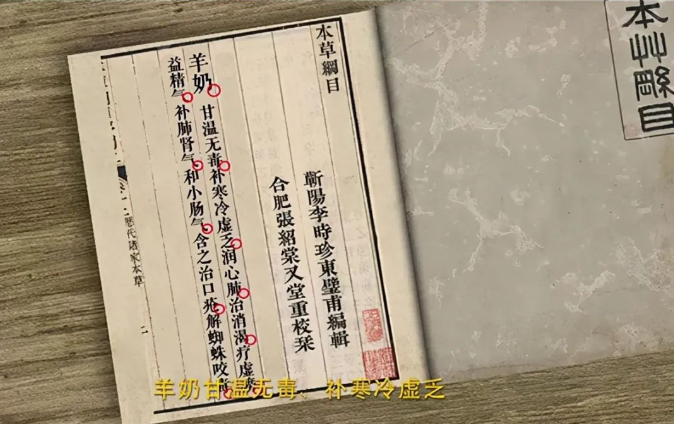 本艸縣目
本草綱目
蘄陽李時珍東璧甫編輯
合肥張紹棠又堂重校栞
羊奶
甘温无毒补寒冷虚乏润心肺治消渴疗虚
益精气补肺肾气和小肠气含之治口疮解蜘蛛咬
歷代诸家本草
二
羊奶甘温无毒、补寒冷虚乏